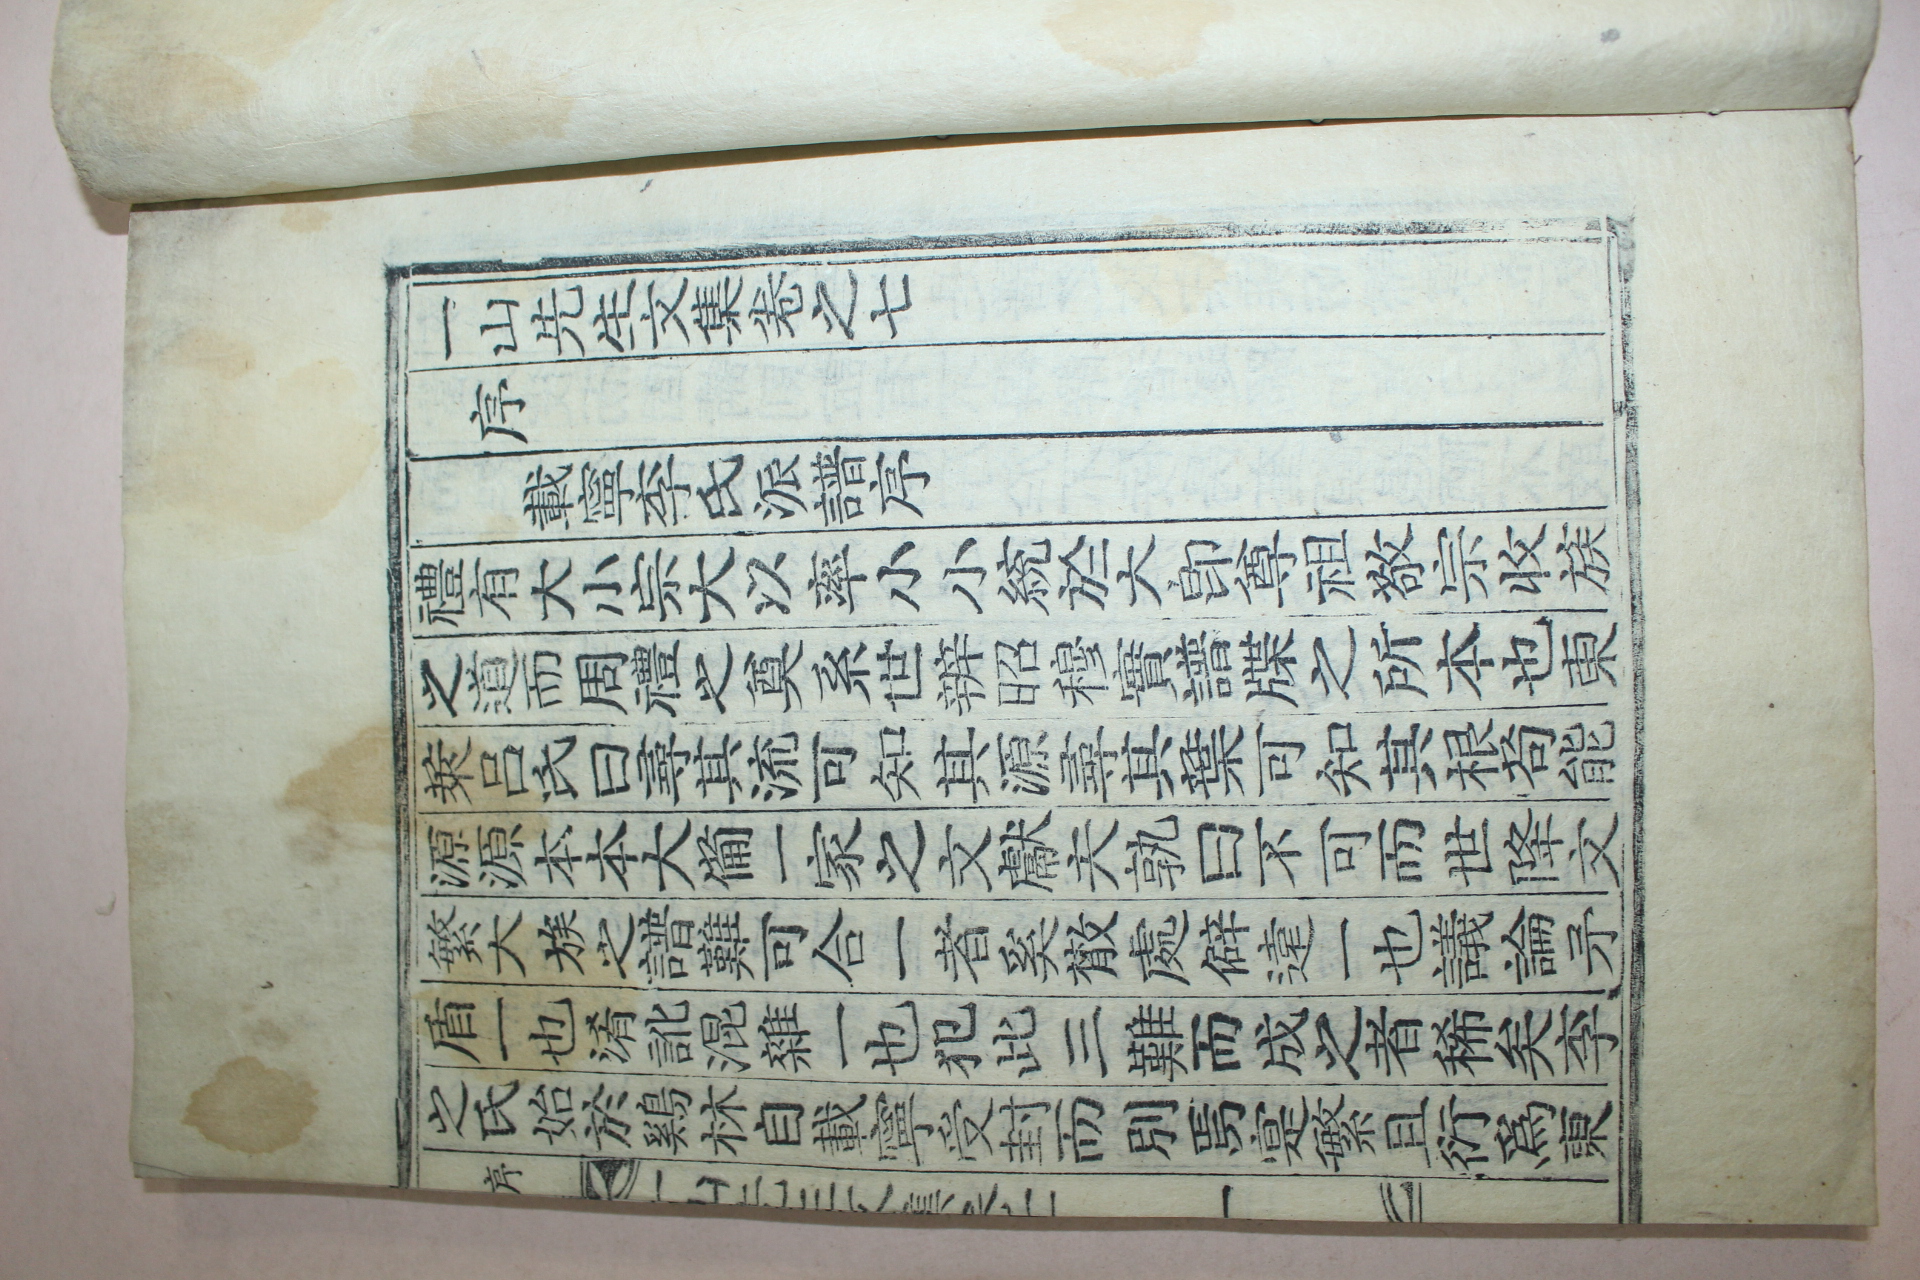 一山先生文集卷之七
序
載寧李氏派譜序
禮有大小宗大以率小小統於大卽尊祖敬宗收族
之道而周禮之奠系世辨昭穆實譜牒之所本也東
萊呂氏曰尋其流可知其源尋其葉可知其根苟能
源源本本大備一家之文獻夫孰曰不可而世降文
繁大族之譜難可合一者奚散處僻遠一也議論矛
盾一也淆訛混雜一也犯此三難而成之者稀矣李
之氏始於鷄林自載寧受封而別焉寔繁且衍爲東
序
一山先生文集卷七 一